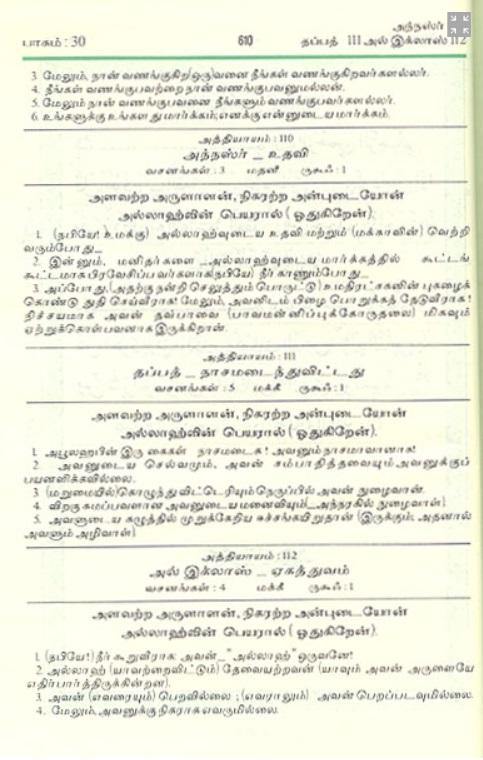 அந்நஸ்ர்
பாகம் : 30 610 தப்பத் 111 அல் இக்லாஸ் 112
3. மேலும், நான் வணங்குகிற(ஒரு)வனை நீங்கள் வணங்குகிறவர்களல்லர்.
4. நீங்கள் வணங்குபவற்றை நான் வணங்குபவனுமல்லன்.
5. மேலும் நான் வணங்குபவனை நீங்களும் வணங்குபவர்களல்லர்.
6. உங்களுக்கு உங்களது மார்க்கம்; எனக்கு என்னுடைய மார்க்கம்.
அத்தியாயம் : 110
அந்நஸ்ர் _ உதவி
வசனங்கள் : 3 மதனீ ருகூஃ : 1
அளவற்ற அருளாளன், நிகரற்ற அன்புடையோன்
அல்லாஹ்வின் பெயரால் ( ஓதுகிறேன்).
1. (நபியே! உமக்கு) அல்லாஹ்வுடைய உதவி மற்றும் (மக்காவின்) வெற்றி
வரும்போது _
2. இன்னும், மனிதர்களை _ அல்லாஹ்வுடைய மார்க்கத்தில் கூட்டங்
கூட்டமாக பிரவேசிப்பவர்களாக(நபியே) நீர் காணும்போது _
3. அப்போது, (அதற்கு நன்றி செலுத்தும் பொருட்டு) உமதிரட்சகனின் புகழைக்
கொண்டு துதி செய்வீராக! மேலும், அவனிடம் பிழை பொறுக்கத் தேடுவீராக!
நிச்சயமாக அவன் தவ்பாவை (பாவமன்னிப்புக்கோருதலை) மிகவும்
ஏற்றுக்கொள்பவனாக இருக்கிறான்.
அத்தியாயம் : 111
தப்பத் _ நாசமடைந்துவிட்டது
வசனங்கள் : 5 மக்கீ ருகூஃ : 1
அளவற்ற அருளாளன், நிகரற்ற அன்புடையோன்
அல்லாஹ்வின் பெயரால் ( ஓதுகிறேன்).
1. அபூலஹபின் இரு கைகள் நாசமடைக! அவனும் நாசமாவானாக!
2. அவனுடைய செல்வமும், அவன் சம்பாதித்தவையும் அவனுக்குப்
பயனளிக்கவில்லை.
3. (மறுமையில்)கொழுந்துவிட்டெரியும் நெருப்பில் அவன் நுழைவான்.
4. விறகு சுமப்பவளான அவனுடைய மனைவியும்(_அந்நரகில் நுழைவாள்)
5. அவளுடைய கழுத்தில் முறுக்கேறிய ஈச்சங்கயிறுதான் (இருக்கும், அதனால்
அவளும் அழிவாள்)
அத்தியாயம் : 112
அல் இக்லாஸ் _ ஏகத்துவம்
வசனங்கள் : 4 மக்கீ ருகூஃ : 1
அளவற்ற அருளாளன், நிகரற்ற அன்புடையோன்
அல்லாஹ்வின் பெயரால் ( ஓதுகிறேன்).
1. (நபியே!) நீர் கூறுவீராக: அவன் _ "அல்லாஹ்" ஒருவனே!
2. அல்லாஹ் (யாவற்றைவிட்டும்) தேவையற்றவன் (யாவும் அவன் அருளையே
எதிர்பார்த்திருக்கின்றன).
3. அவன் (எவரையும்) பெறவில்லை ; (எவராலும்) அவன் பெறப்படவுமில்லை.
4. மேலும், அவனுக்கு நிகராக எவருமில்லை.